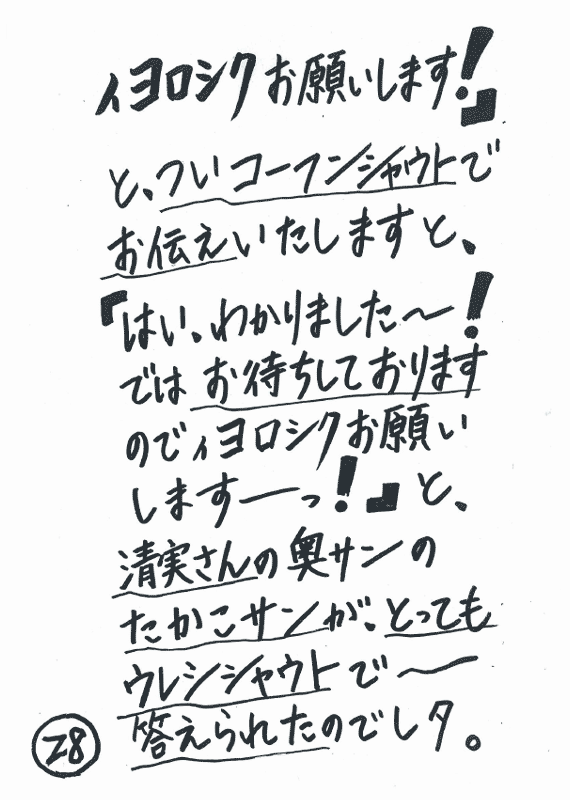 ィヨロシクお願いします!』
と、ついコーフンシャウトで
お伝えいたしますと、
『はい、わかりました〜!
ではお待ちしております
のでィヨロシクお願い
しますーっ!』と、
清実さんの奥サンの
たかこサンが、とっても
ウレシシャウトで〜
答えられたのでしタ。
28